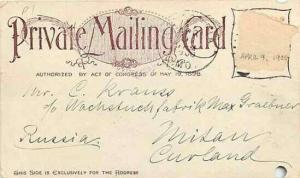 Private Mailing Card
AUTHORIZED BY ACT OF CONGRESS OF MAY 19, 1898.
APRIL 9, 
Mr. C. Krauss
c/o Wachstuchfabrik Max Graebner
Mitau
Russia
Curland
THIS SIDE IS EXCLUSIVELY FOR THE ADDRESS